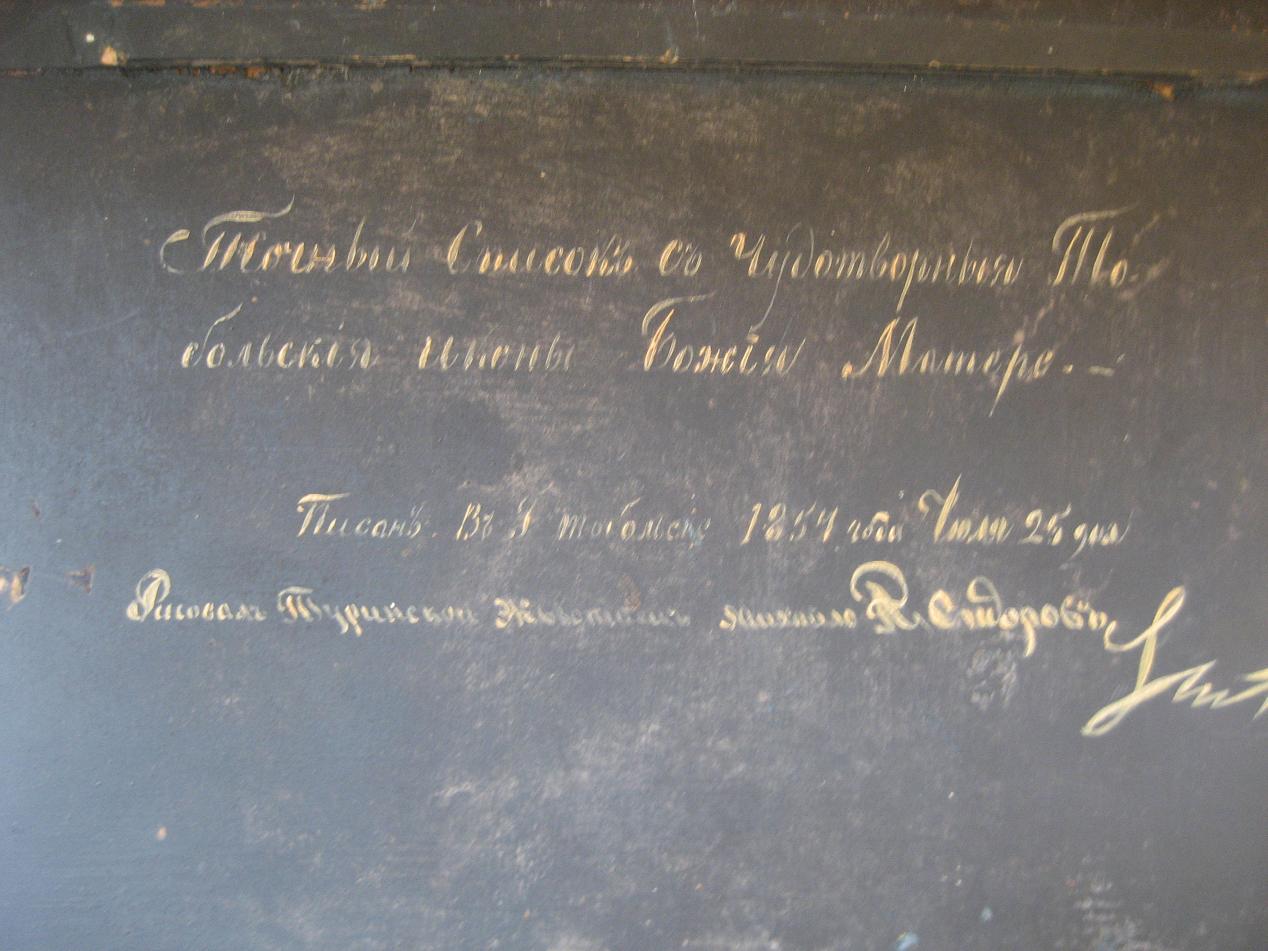 Точный Списокъ съ Чудотворныя То-
больскія иконы Божія Матере.
Писанъ. Въ Г Тобольске 1857 года Июля 25 дня
Рисовалъ Туринской Живописецъ Михайло К. Сидоровъ